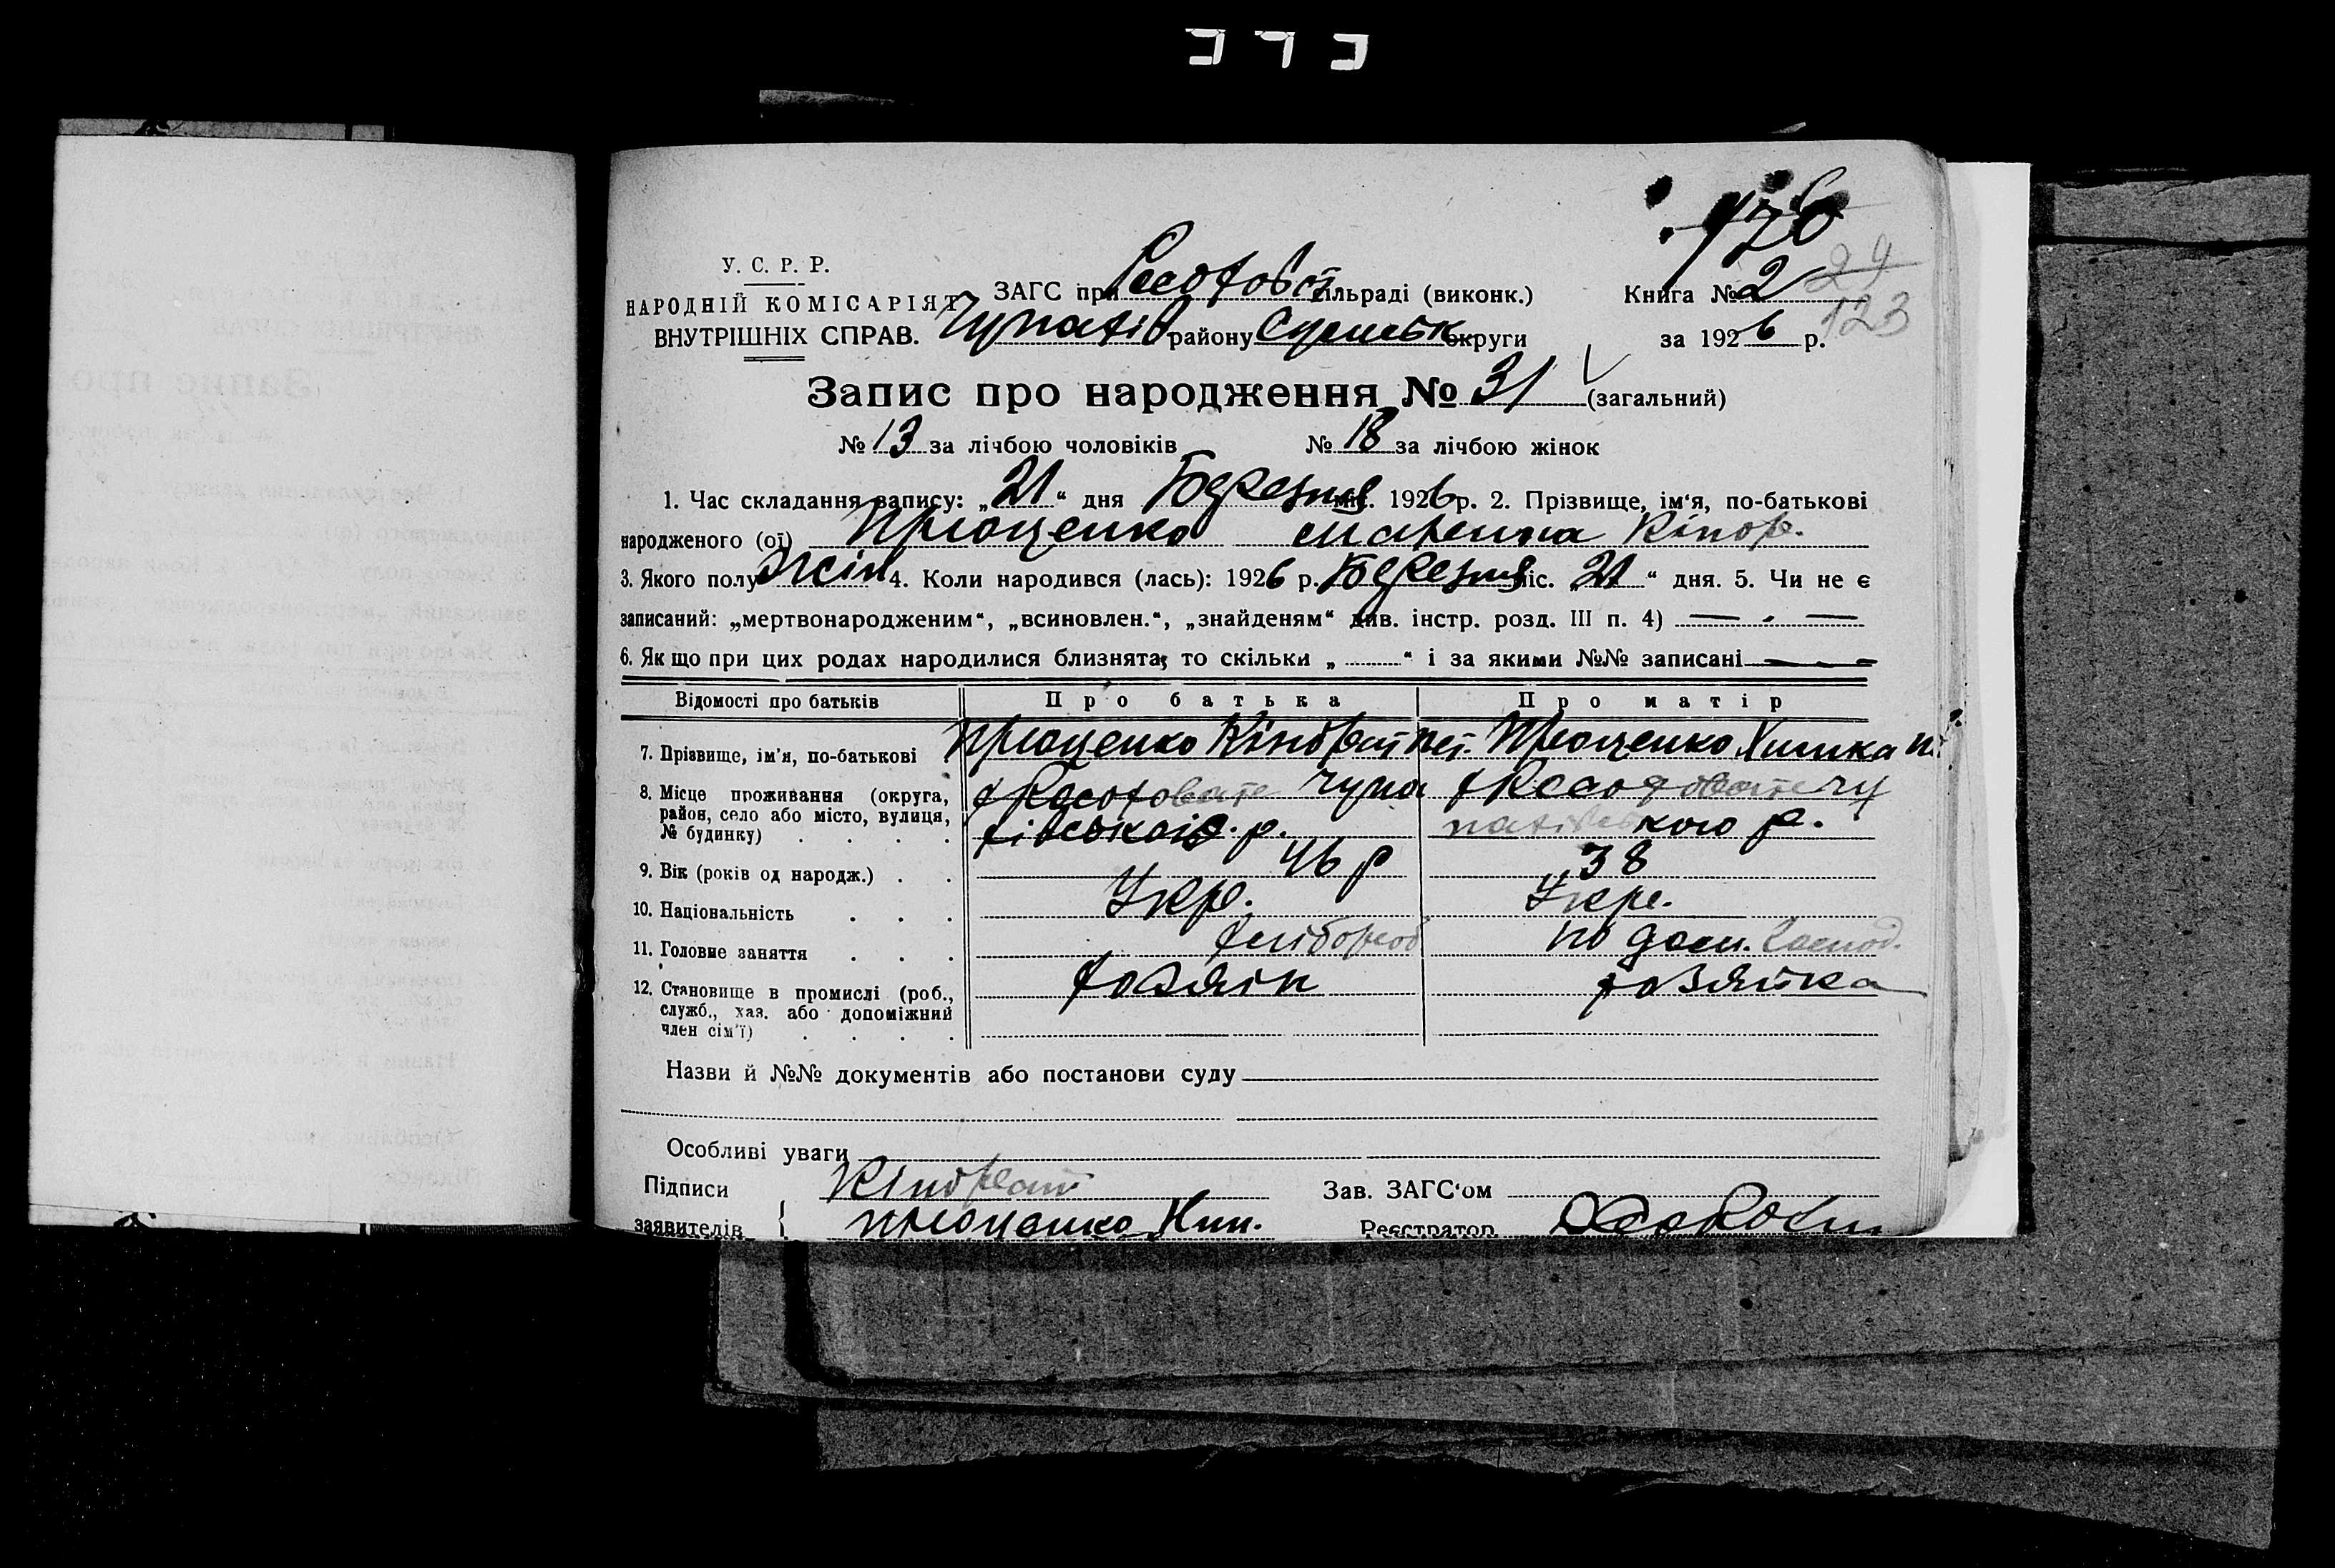 176
У. С. Р. Р.
НАРОДНІЙ КОМІСАРІЯТ
ВНУТРІШНІХ СПРАВ.
ЗАГС при сільраді (виконк.)
Чупахів району Сумськ округи
Книга № 2
24
123
за 1926 р.
Запис про народження № 31 (загальний)
№ 13 за лічбою чоловіків № 18 за лічбою жінок
1. Час складання запису: „21“ дня Березня міс. 1926 р. 2. Прізвище, ім'я, по-батькові
народженого (ої) Проценко Кіндр.
3. Якого полу Жін 4. Коли народився (лась): 1926 р. Березня міс. „21“ дня. 5. Чи не є
записаний: „мертвонародженим“, „всиновлен.“, „знайденям“ див. інстр. розд. III п. 4) — . —
6. Якщо при цих родах народилися близнята, то скільки „ “ і за якими №№ записані —
Відомості про батьків Про батька Про матір
7. Прізвище, ім'я, по-батькові Проценко Кіндрат Пет. Проценко Химка
8. Місце проживання (округа, район, село або місто, вулиця, № будинку) Чупахівськ р. Чупахівського р.
9. Вік (років од народж.) 46 р 38
10. Національність Укр. Укр.
11. Головне заняття хлібород по дом. господ.
12. Становище в промислі (роб., служб., хаз. або допоміжний член сім'ї) хозяїн хозяйка
Назви й №№ документів або постанови суду
Особливі уваги
Підписи Кіндрат Зав. ЗАГС'ом
заявителів Проценко Реєстратор